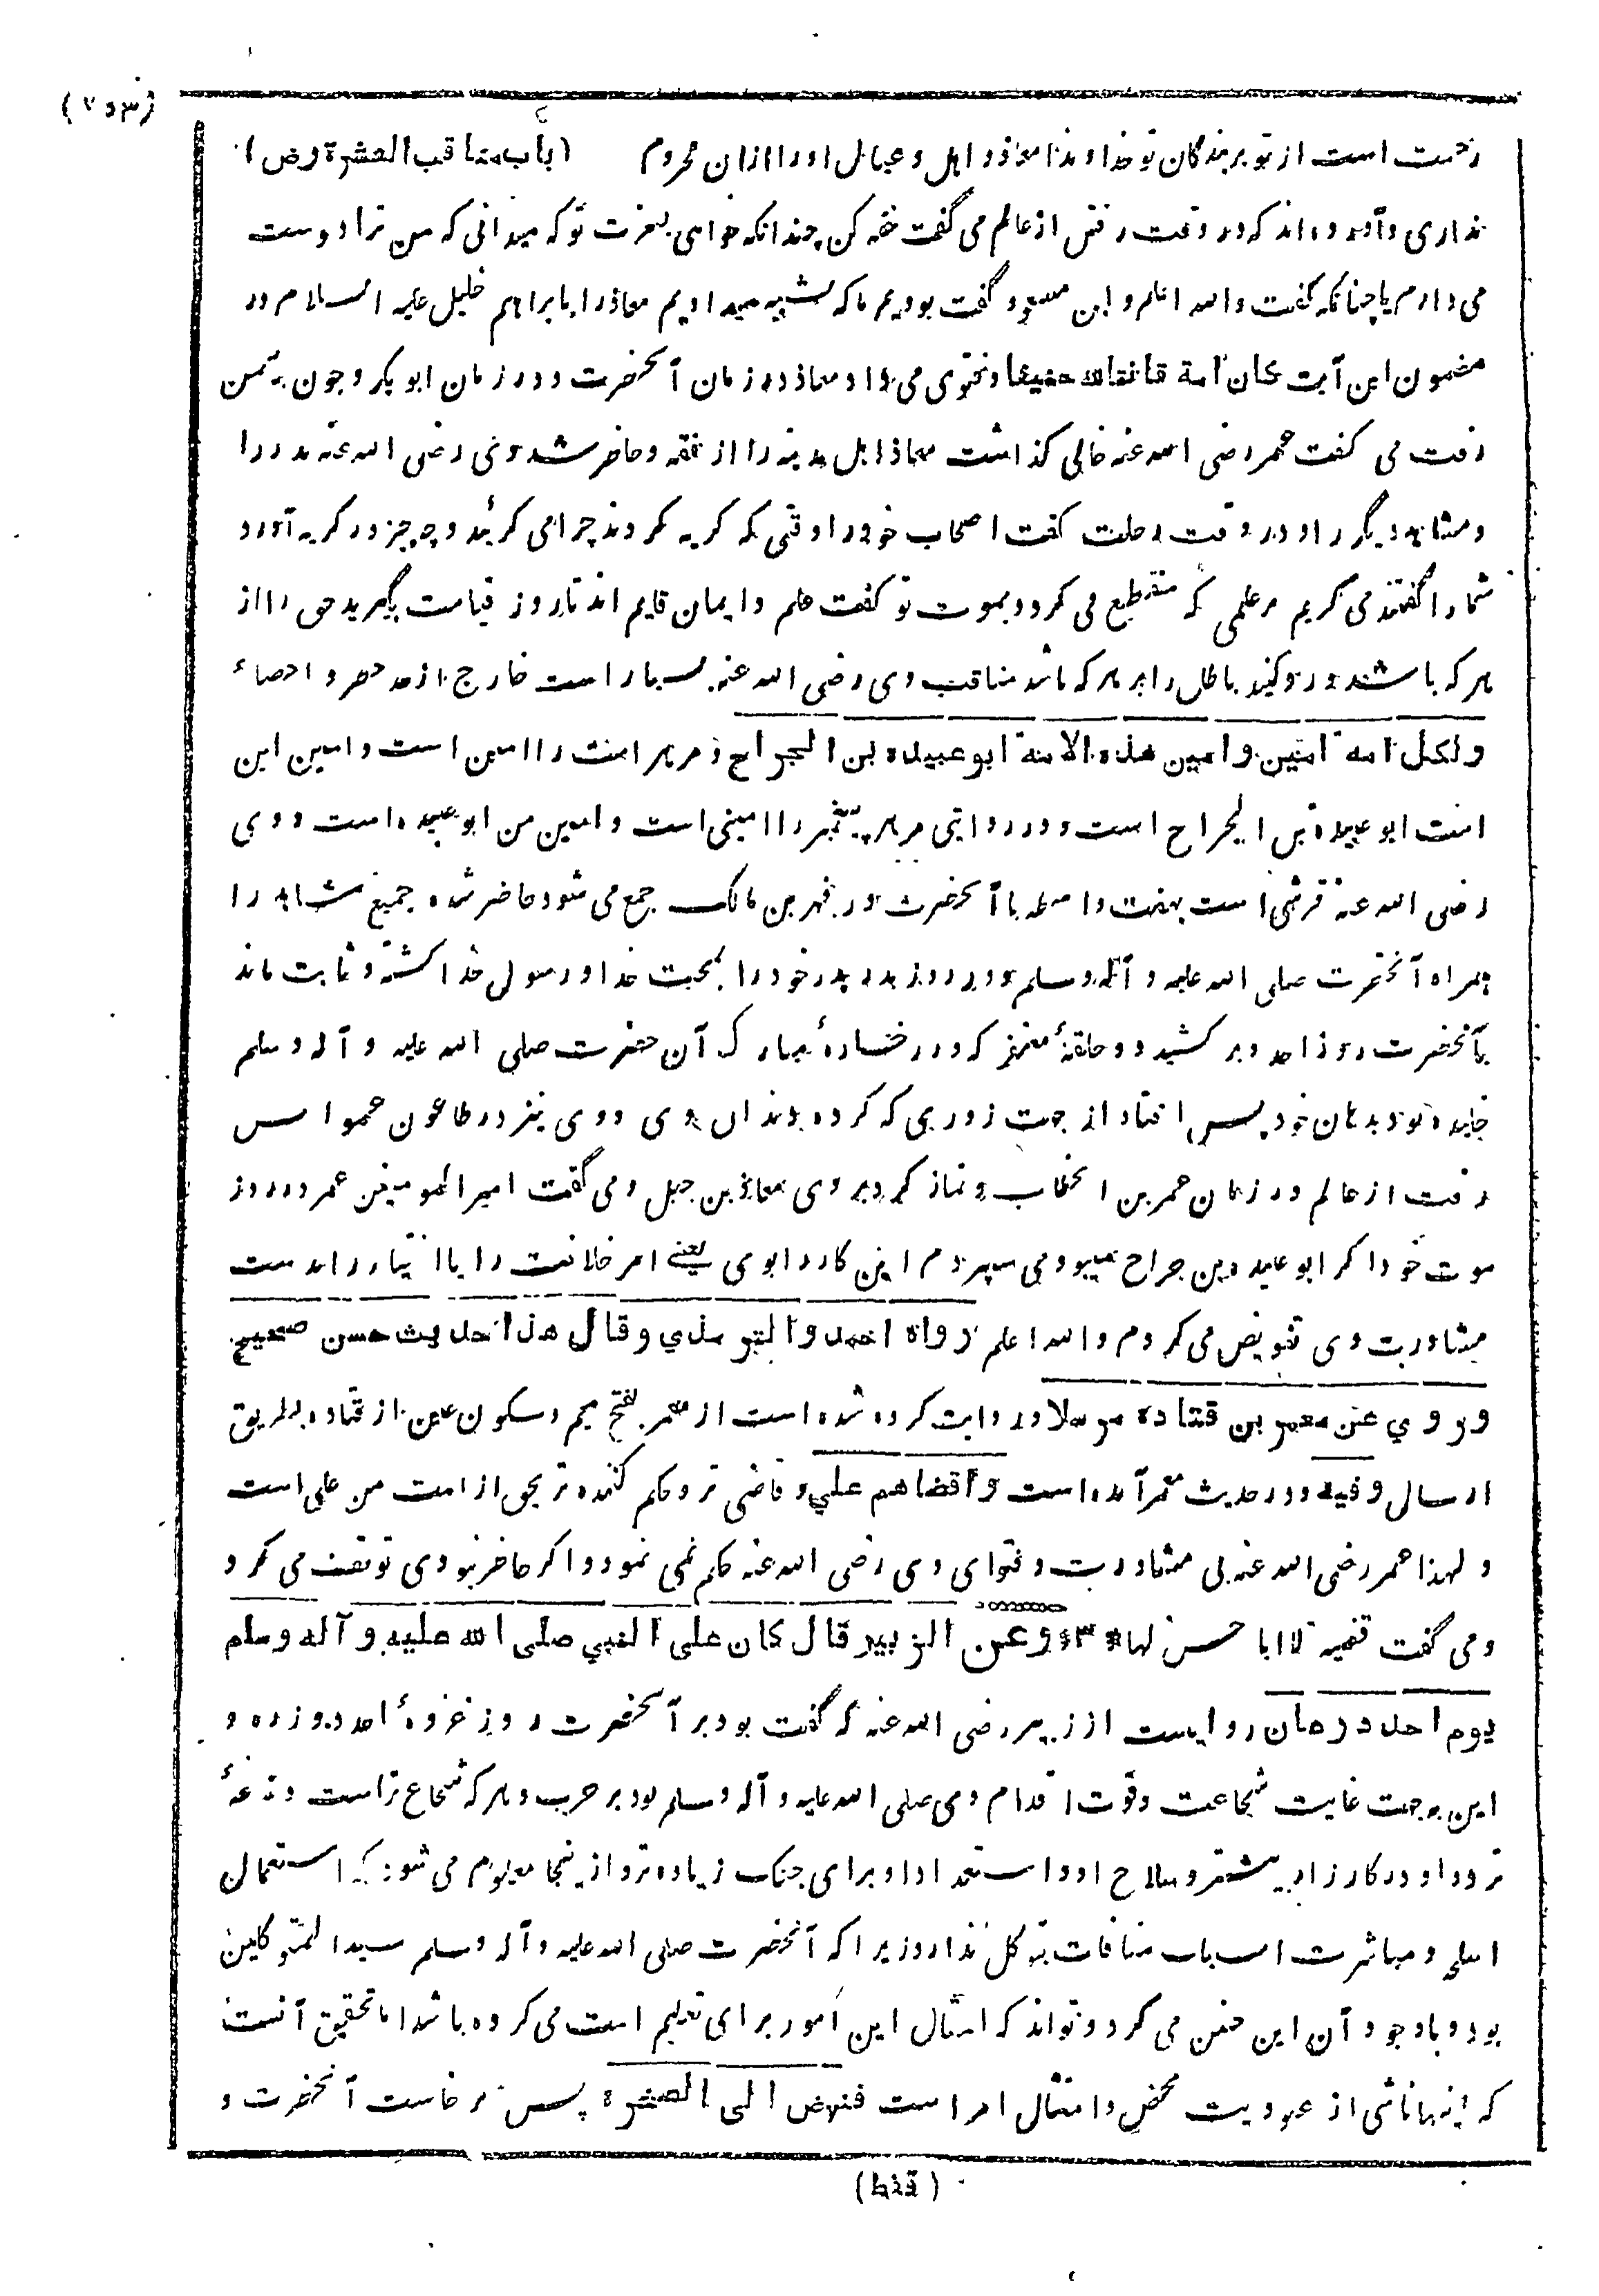 (۷۵۳)
(باب مناقب العشرة رض)
رحمت است از تو بر بندگان تو خداوندا معاذ و اهل و عیال او را ازان محروم
نداری و آورده اند که در وقت رفتن از عالم می گفت خفه کن چندانکه خواهی بعزت تو که میدانی که من ترا دوست
می دارم یا چنانکه گفت والله اعلم و ابن مسعود گفت بودیم ما که تشبیه میدادیم معاذ را بابراهیم خلیل علیه السلام در
مضمون این آیت کان امة قانتا لله حنیفا و فتوی می داد معاذ در زمان آنحضرت و در زمان ابو بکر و چون به یمن
رفت می گفت عمر رضی الله عنه خالی گذاشت معاذ اهل مدینه را از فقه و حاضر شد وی رضی الله عنه بدر را
و مشاهد دیگر را و در وقت رحلت گفت اصحاب خود را وقتی که گریه کردند چرا می گریند و چه چیز در گریه آورد
شما را گفتند می گریم بر علمی که منقطع می گردد بموت تو گفت علم و ایمان قایم اند تا روز قیامت بگیرید حق را از
هر که باشد و رد کنید باطل را بر هر که باشد مناقب وی رضی الله عنه بسیار است خارج از حد حصر و احصاء
ولکل امة امین و امین هذه الامة ابو عبیدة بن الجراح و مر هر امت را امین است و امین این
امت ابو عبیدة بن الجراح است و در روایتی مر هر پیغمبر را امینی است و امین من ابو عبیده است و وی
رضی الله عنه قرشی است بهفت واسطه با آنحضرت در فهر بن مالک جمع می شود حاضر شده جمیع مشاهد را
همراه آنحضرت صلی الله علیه و آله و سلم و در روز بدر پدر خود را بمحبت خدا و رسول خدا کشته و ثابت ماند
بآنحضرت روز احد و بر کشید دو حلقهٔ مغفر که در رخسارهٔ مبارک آن حضرت صلی الله علیه و آله و سلم
خلیده بود بدهان خود پس افتاد از جهت زوری که کرده دندان وی و وی نیز در طاعون عمواس
رفت از عالم در زمان عمر بن الخطاب و نماز کرد بر وی معاذ بن جبل و می گفت امیر المومنین عمر در روز
موت خود اگر ابو عبیده بن جراح می بود می سپردم این کار را بوی یعنی امر خلافت را با اختیار را بدست
مشاورت وی تفویض می کردم والله اعلم رواه احمد والترمذي وقال هذا حديث حسن صحیح
وروي عن معمر بن قتادة مرسلا و روایت کرده شده است از معمر بفتح میم و سکون عین از قتاده بطریق
ارسال وفیه و در حدیث معمر آمده است و اقضاهم علي و قاضی تر و حکم کننده تر بحق از امت من علی است
و لهذا عمر رضی الله عنه بی مشاورت و فتوای وی رضی الله عنه حکم نمی نمود و اگر حاضر نبودی توقف می کرد
و می گفت قضیة لا ابا حسن لها * ۳ * وعن الزبير قال كان على النبي صلى الله عليه و آله وسلم
يوم احد درعان روایست از زبیر رضی الله عنه که گفت بود بر آنحضرت روز غزوهٔ احد دو زره و
این بجهت غایت شجاعت و قوت اقدام وی صلی الله علیه و آله و سلم بود بر حرب و هر که شجاع تر است و
تردد او در کارزار بیشتر و سلاح او و استعداد او برای جنگ زیاده تر و ازینجا معلوم می شود که استعمال
اسلحه و مباشرت اسباب منافات بتوکل ندارد زیرا که آنحضرت صلی الله علیه و آله و سلم سید المتوکلین
بود و باوجود آن این چنین می کرد و تواند که امثال این امور برای تعلیم است می کرده باشد اما تحقیق آنست
که اینها ناشی از عبودیت محض و امتثال امر است فنهض الى الصخرة پس برخاست آنحضرت و
(قنط)